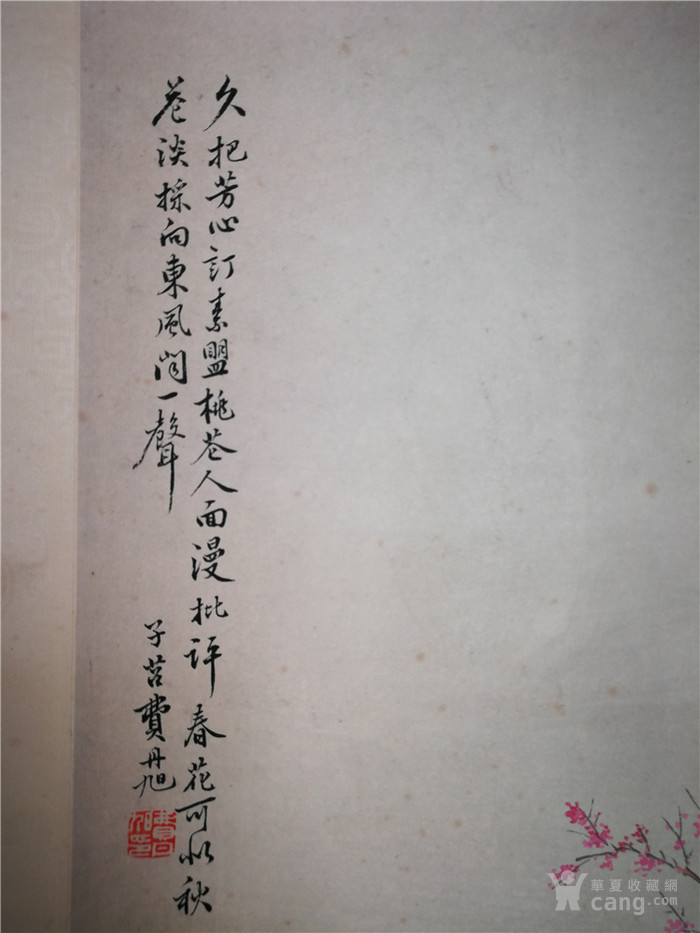 久把芳心訂素盟桃花人面漫批評春花可似秋
花淡採向東風問一聲
子苕費丹旭
華夏收藏網
cang.com